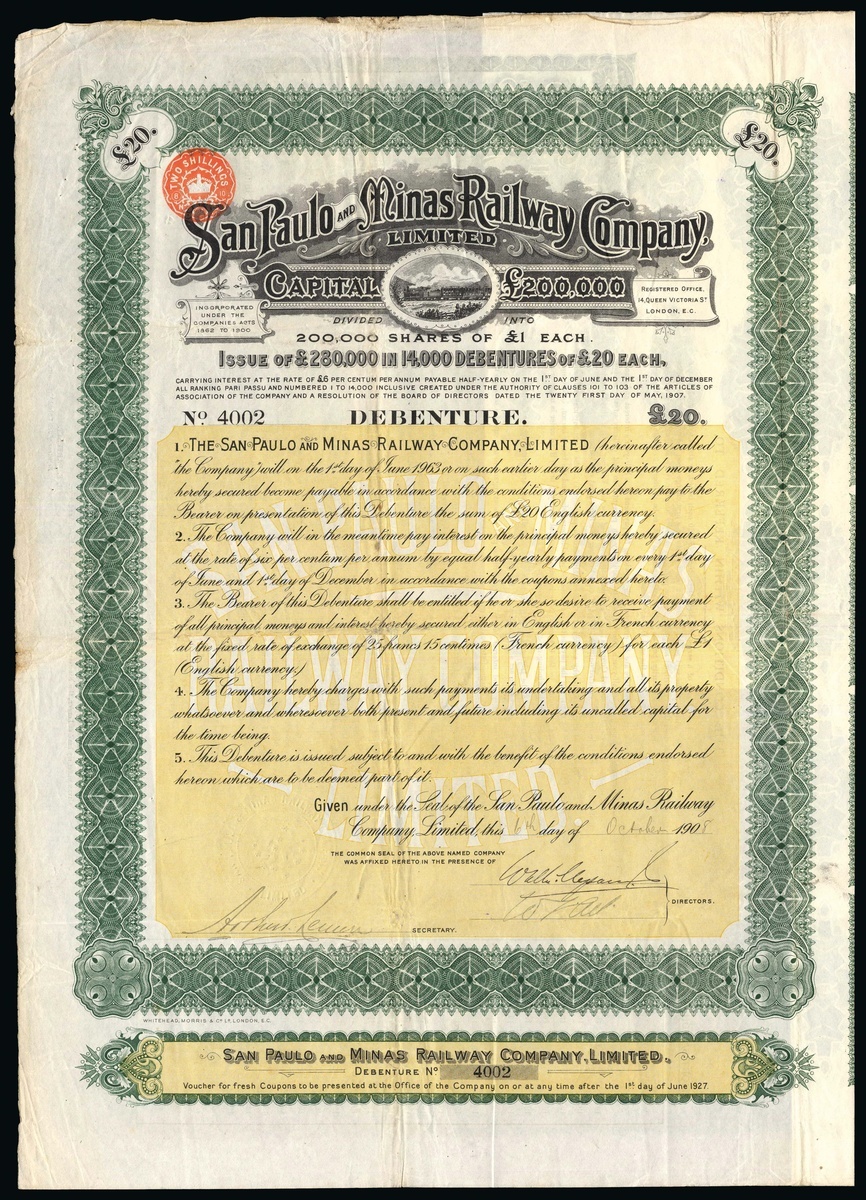 £20.
£20.
TWO SHILLINGS
San Paulo AND Minas Railway Company,
LIMITED
CAPITAL £200,000
INCORPORATED
UNDER THE
COMPANIES ACTS
1862 TO 1900
REGISTERED OFFICE,
14, QUEEN VICTORIA ST
LONDON, E.C.
DIVIDED INTO
200,000 SHARES OF £1 EACH.
ISSUE OF £280,000 IN 14,000 DEBENTURES OF £20 EACH,
CARRYING INTEREST AT THE RATE OF £6 PER CENTUM PER ANNUM PAYABLE HALF-YEARLY ON THE 1ST DAY OF JUNE AND THE 1ST DAY OF DECEMBER
ALL RANKING PARI PASSU AND NUMBERED 1 TO 14,000 INCLUSIVE CREATED UNDER THE AUTHORITY OF CLAUSES 101 TO 103 OF THE ARTICLES OF
ASSOCIATION OF THE COMPANY AND A RESOLUTION OF THE BOARD OF DIRECTORS DATED THE TWENTY FIRST DAY OF MAY, 1907.
No 4002 DEBENTURE. £20.
1. THE SAN PAULO AND MINAS RAILWAY COMPANY, LIMITED (hereinafter called
"the Company") will on the 1st day of June 1963 or on such earlier day as the principal moneys
hereby secured become payable in accordance with the conditions endorsed hereon pay to the
Bearer on presentation of this Debenture the sum of £20 English currency.
2. The Company will in the meantime pay interest on the principal moneys hereby secured
at the rate of six per centum per annum by equal half-yearly payments on every 1st day
of June and 1st day of December in accordance with the coupons annexed hereto.
3. The Bearer of this Debenture shall be entitled if he or she so desire to receive payment
of all principal moneys and interest hereby secured either in English or in French currency
at the fixed rate of exchange of 25 francs 15 centimes (French currency) for each £1
(English currency.)
4. The Company hereby charges with such payments its undertaking and all its property
whatsoever and wheresoever both present and future including its uncalled capital for
the time being.
5. This Debenture is issued subject to and with the benefit of the conditions endorsed
hereon which are to be deemed part of it.
SAN PAULO & MINAS
RAILWAY COMPANY
LIMITED.
Given under the Seal of the San Paulo and Minas Railway
Company, Limited, this 6th day of October 1908
THE COMMON SEAL OF THE ABOVE NAMED COMPANY
WAS AFFIXED HERETO IN THE PRESENCE OF
DIRECTORS.
Arthur
SECRETARY.
WHITEHEAD, MORRIS & CO LD, LONDON, E.C.
SAN PAULO AND MINAS RAILWAY COMPANY, LIMITED.
DEBENTURE No 4002
Voucher for fresh Coupons to be presented at the Office of the Company on or at any time after the 1st day of June 1927.